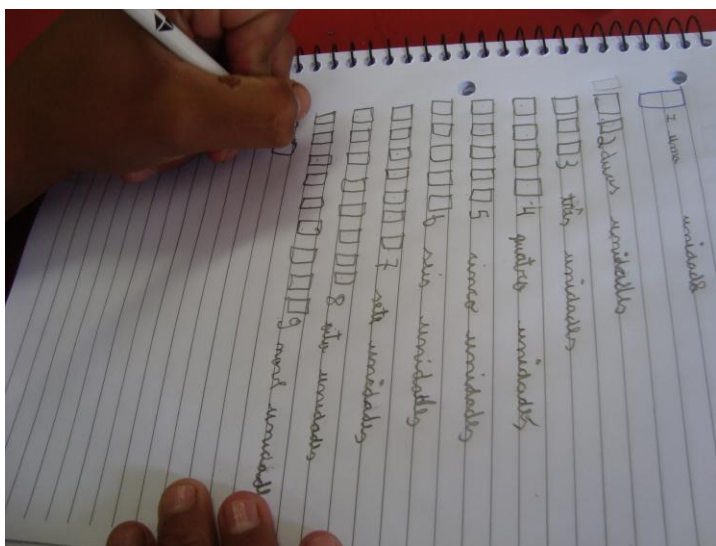 1 uma unidade
2 duas unidades
3 três unidades
4 quatro unidades
5 cinco unidades
6 seis unidades
7 sete unidades
8 oito unidades
9 nove unidade